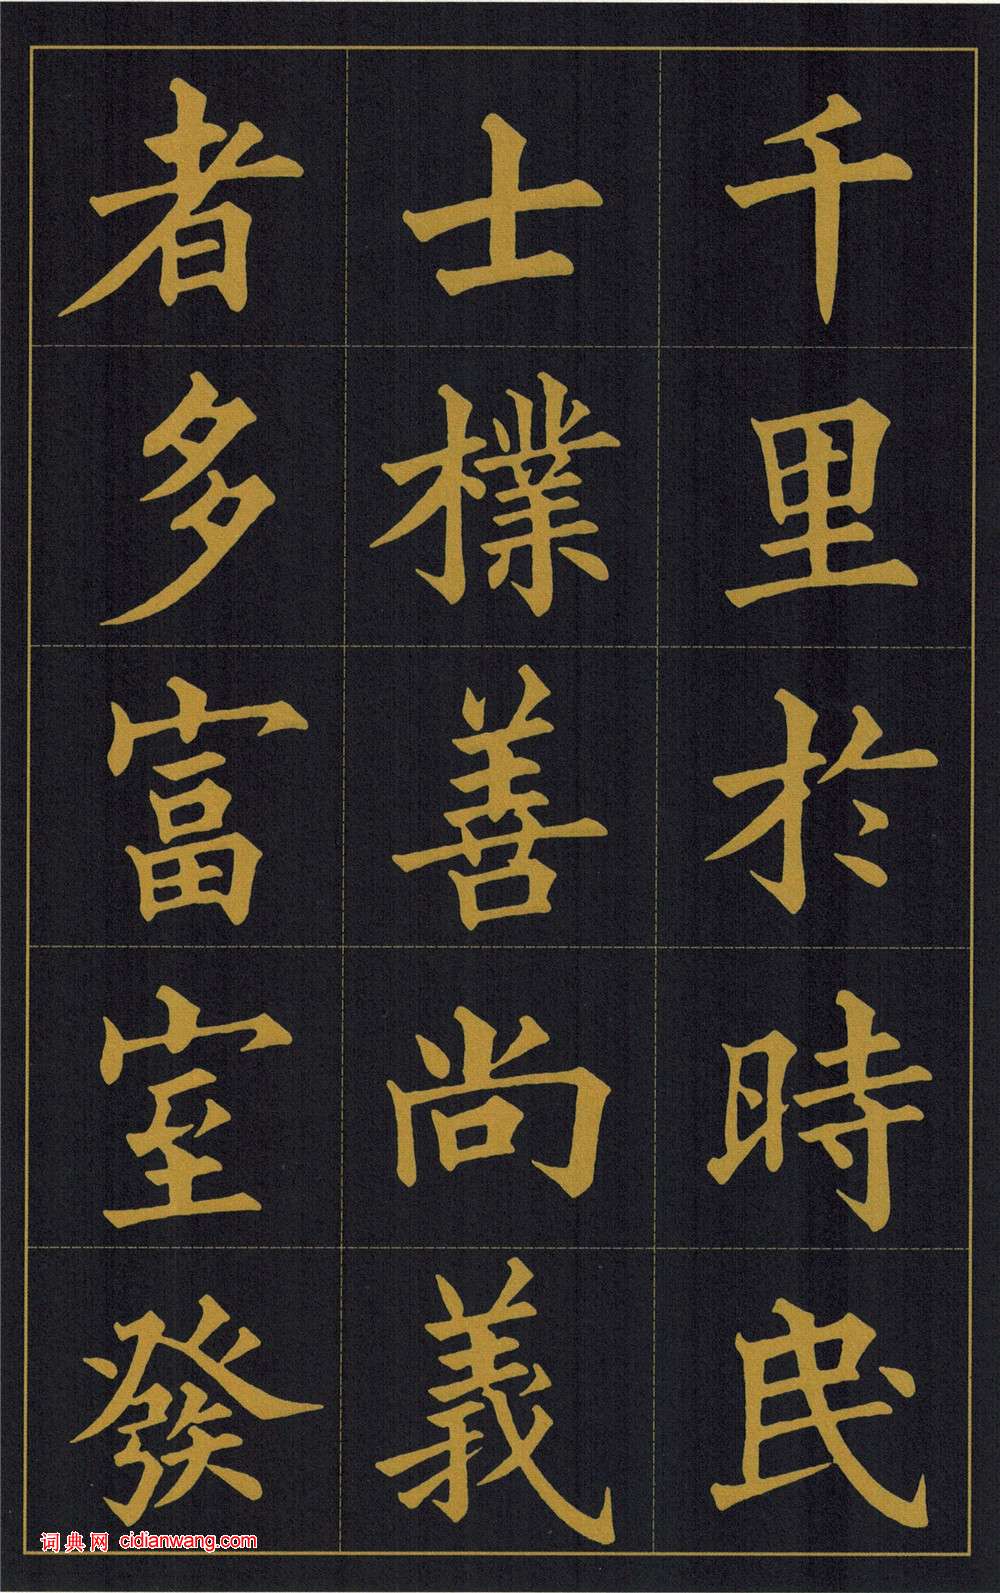 千里於時民
士樸善尚義
者多富室發
词典网 cidianwang.com